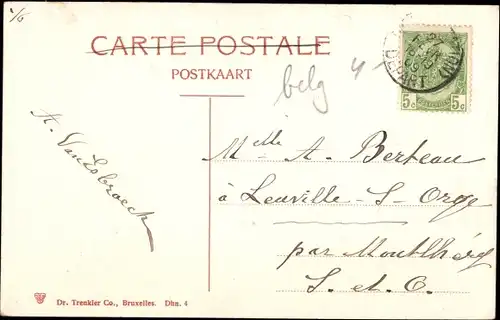 1/6
CARTE POSTALE
POSTKAART
belg
4-
5c 5c
DEPART
A. Vanlobroeck
Melle A. Berteau
à Leuville-S-Orge
par Montlhéry
S. et O.
Dr. Trenkler Co., Bruxelles. Dhn. 4